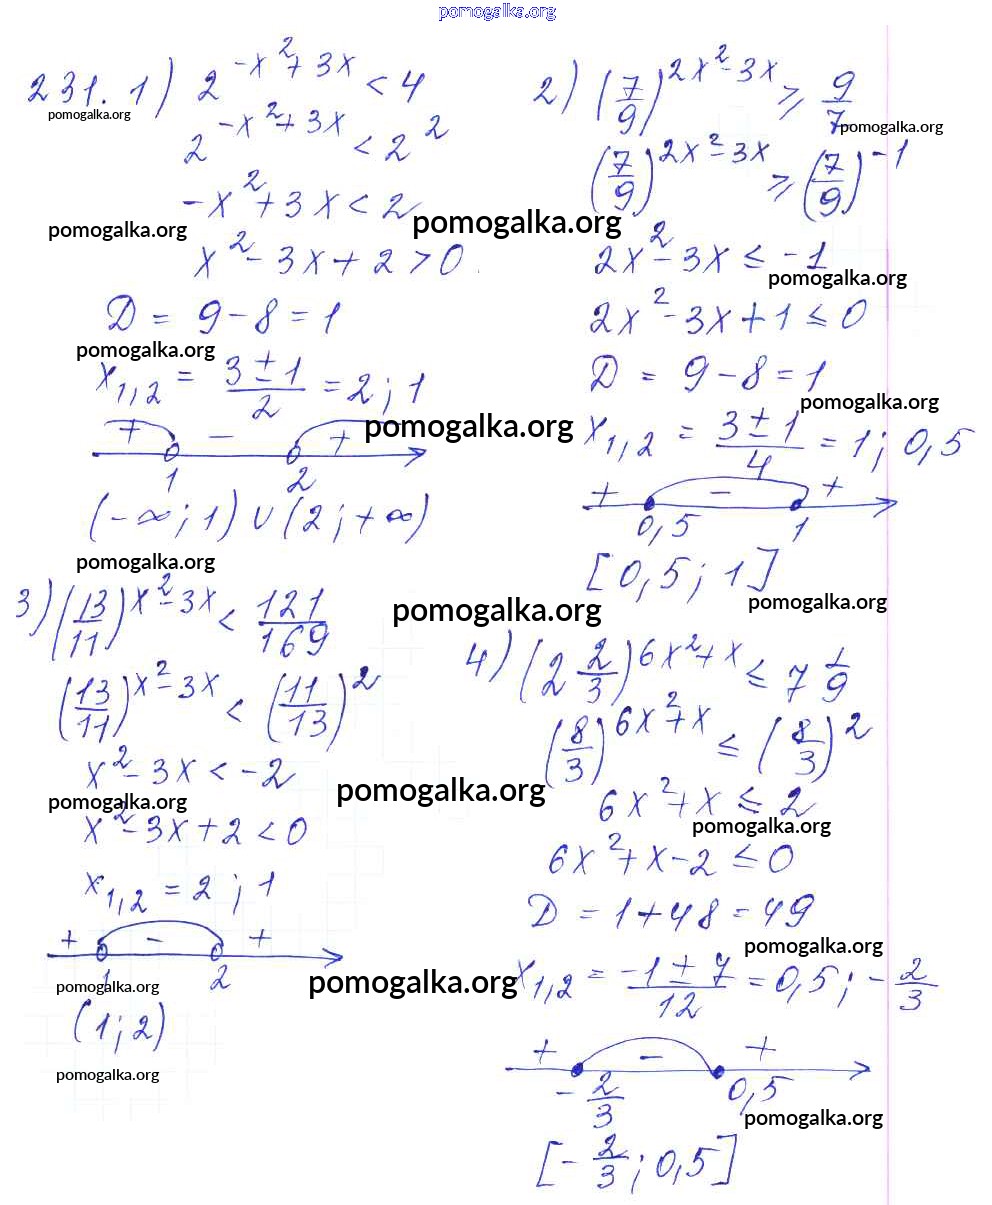 pomogalka.org
231. 1) 2^(-x²+3x) < 4
pomogalka.org
2^(-x²+3x) < 2²
-x²+3x < 2
pomogalka.org
pomogalka.org
x²-3x+2 > 0
D = 9-8 = 1
pomogalka.org
x₁,₂ = (3±1)/2 = 2; 1
pomogalka.org
+ - +
1 2
(-∞; 1) ∪ (2; +∞)
pomogalka.org
2) (7/9)^(2x²-3x) ≥ 9/7
pomogalka.org
(7/9)^(2x²-3x) ≥ (7/9)^(-1)
2x²-3x ≤ -1
pomogalka.org
2x²-3x+1 ≤ 0
D = 9-8 = 1
pomogalka.org
x₁,₂ = (3±1)/4 = 1; 0,5
+ - +
0,5 1
[0,5; 1]
pomogalka.org
3) (13/11)^(x²-3x) < 121/169
pomogalka.org
(13/11)^(x²-3x) < (11/13)²
x²-3x < -2
pomogalka.org
pomogalka.org
x²-3x+2 < 0
x₁,₂ = 2; 1
+ - +
1 2
pomogalka.org
pomogalka.org
(1; 2)
pomogalka.org
4) (2 2/3)^(6x²+x) ≤ 7 1/9
(8/3)^(6x²+x) ≤ (8/3)²
6x²+x ≤ 2
pomogalka.org
6x²+x-2 ≤ 0
D = 1+48 = 49
pomogalka.org
x₁,₂ = (-1±7)/12 = 0,5; -2/3
+ - +
-2/3 0,5
pomogalka.org
[-2/3; 0,5]